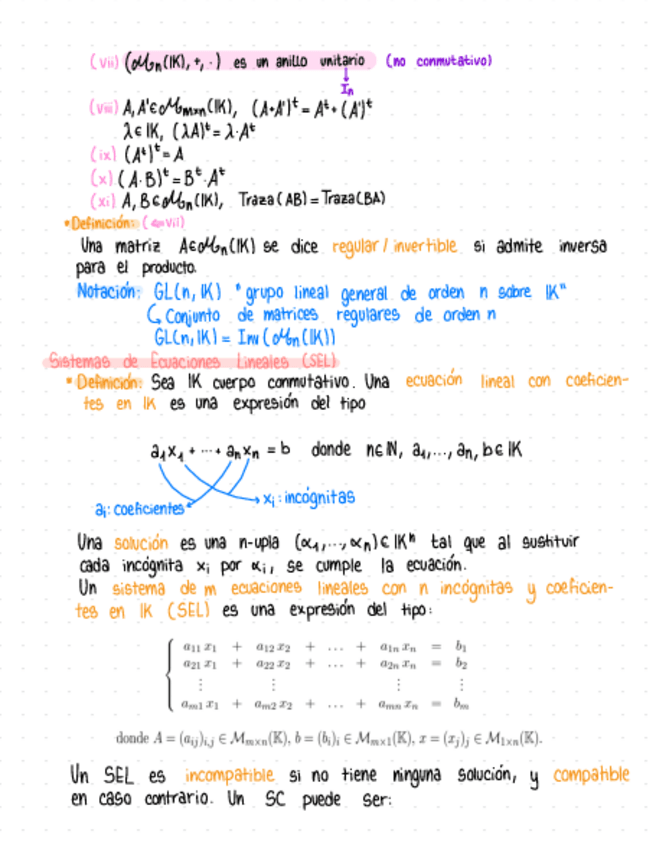 (vii) (ℳn(𝕂), +, ·) es un anillo unitario (no conmutativo)
↓
In
(viii) A, A'∈ℳmxn(𝕂), (A+A')ᵗ = Aᵗ + (A')ᵗ
λ∈𝕂, (λA)ᵗ = λ·Aᵗ
(ix) (Aᵗ)ᵗ = A
(x) (A·B)ᵗ = Bᵗ·Aᵗ
(xi) A, B∈ℳn(𝕂), Traza(AB) = Traza(BA)
• Definición: (⇐vii)
Una matriz A∈ℳn(𝕂) se dice regular / invertible si admite inversa
para el producto.
Notación: GL(n, 𝕂) "grupo lineal general de orden n sobre 𝕂"
↳ Conjunto de matrices regulares de orden n
GL(n, 𝕂) = Inv(ℳn(𝕂))
Sistemas de Ecuaciones Lineales (SEL)
• Definición: Sea 𝕂 cuerpo conmutativo. Una ecuación lineal con coeficien-
tes en 𝕂 es una expresión del tipo
a₁x₁ + ··· + aₙxₙ = b donde n∈ℕ, a₁,..., aₙ, b∈𝕂
xᵢ: incógnitas
aᵢ: coeficientes
Una solución es una n-upla (α₁,..., αₙ)∈𝕂ⁿ tal que al sustituir
cada incógnita xᵢ por αᵢ, se cumple la ecuación.
Un sistema de m ecuaciones lineales con n incógnitas y coeficien-
tes en 𝕂 (SEL) es una expresión del tipo:
a₁₁ x₁ + a₁₂ x₂ + ... + a₁ₙ xₙ = b₁
a₂₁ x₁ + a₂₂ x₂ + ... + a₂ₙ xₙ = b₂
⋮ ⋮ ⋮ ⋮
aₘ₁ x₁ + aₘ₂ x₂ + ... + aₘₙ xₙ = bₘ
donde A = (aᵢⱼ)ᵢ,ⱼ ∈ ℳm×n(𝕂), b = (bᵢ)ᵢ ∈ ℳm×1(𝕂), x = (xⱼ)ⱼ ∈ ℳ1×n(𝕂).
Un SEL es incompatible si no tiene ninguna solución, y compatible
en caso contrario. Un SC puede ser: